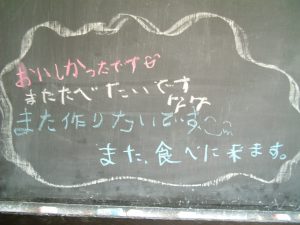 おいしかったです
またたべたいです
ワクワク
また作りたいです。
また、食べに来ます。